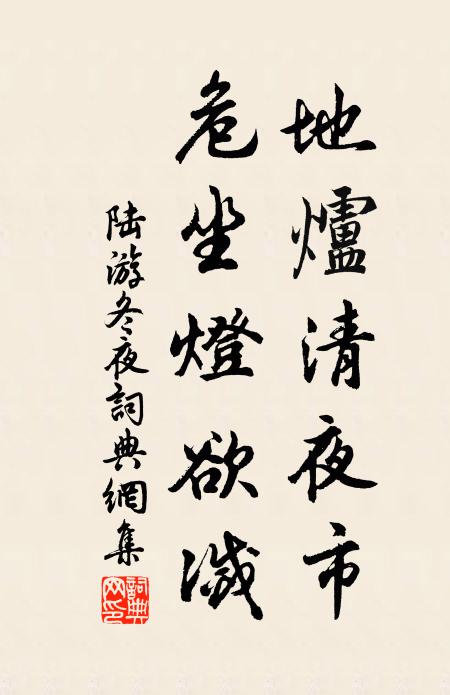 地爐清夜市
危坐燈欲滅
陆游冬夜詞典網集
詞典网印